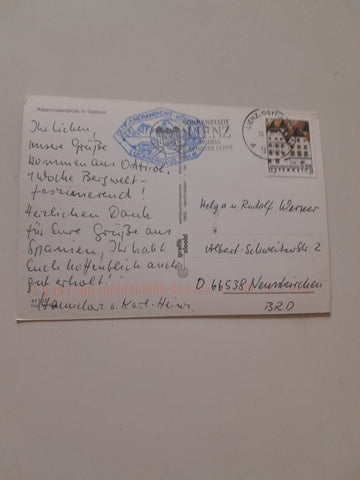 Alpenrosenblüte in Osttirol
Ihr Lieben,
unsere Grüße
kommen aus Osttirol,
1 Woche Bergwelt-
faszinierend!
Herzlichen Dank
für Eure Grüße aus
Spanien, Ihr habt
Euch hoffentlich auch
gut erholt!
Hannelore u. Karl-Heinz
SONNENSTADT
LIENZ
LIENZ, OSTT
ÖSTERREICH
Helga u. Rudolf Werner
Albert-Schweitzerstr. 2
D 66538 Neunkirchen
BRD
grafik
zloebl